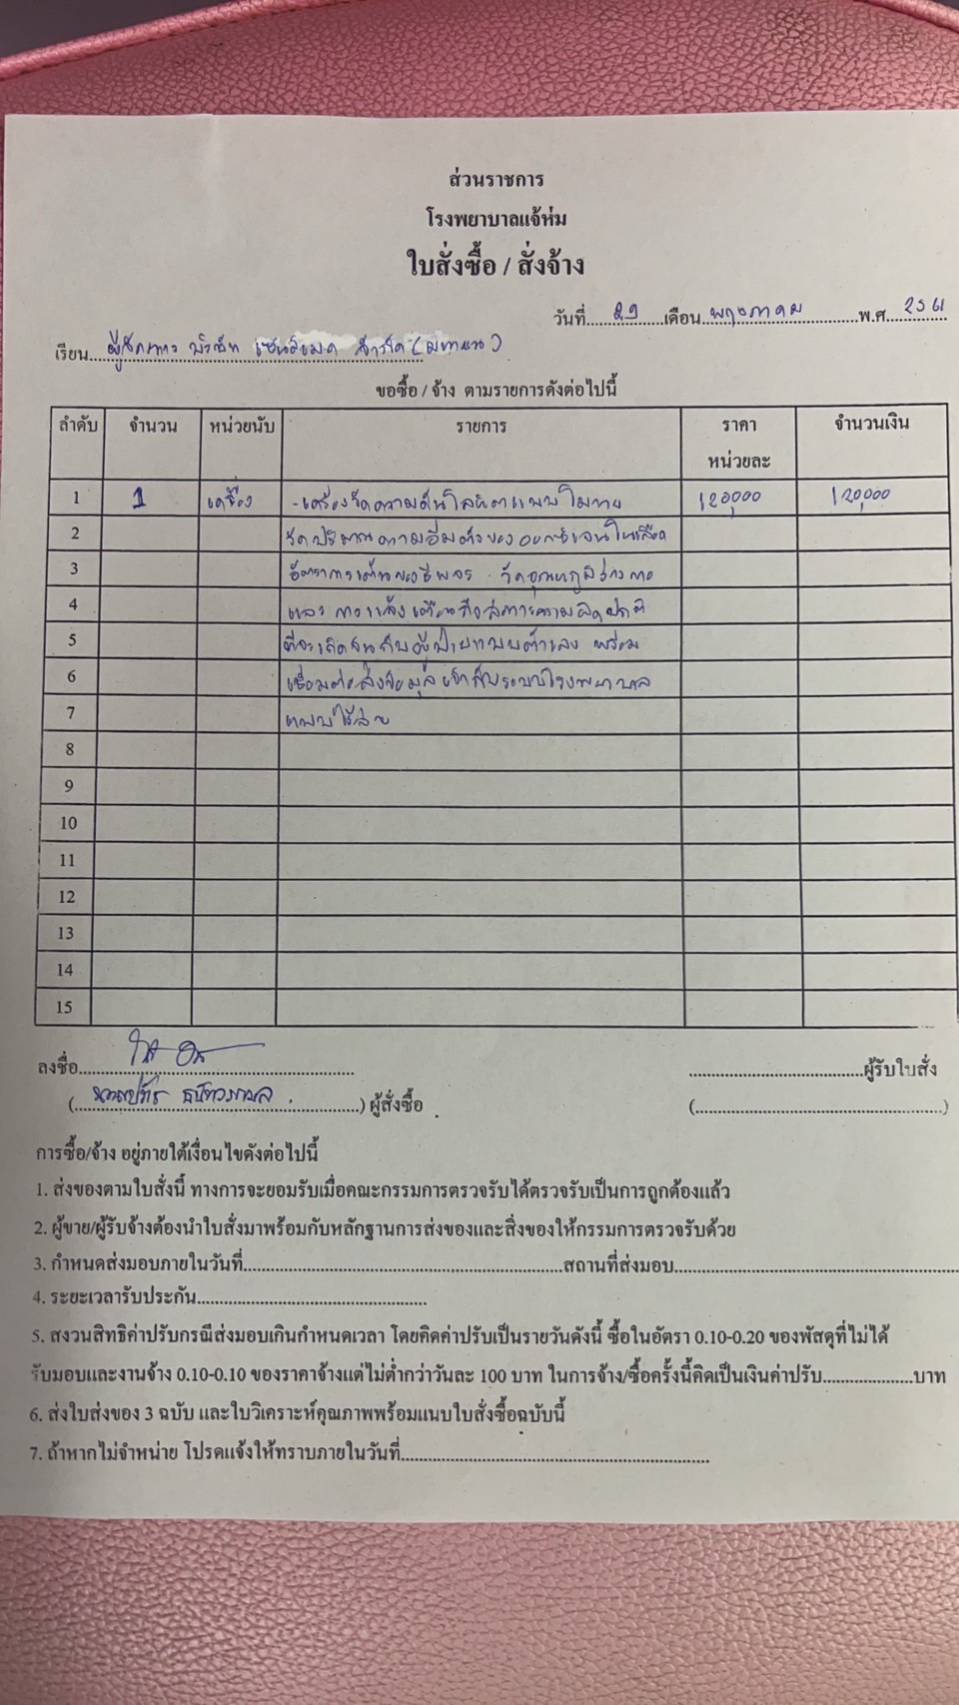 ส่วนราชการ
โรงพยาบาลแจ้ห่ม
ใบสั่งซื้อ / สั่งจ้าง
วันที่ 29 เดือน พฤษภาคม พ.ศ. 2561
เรียน ผู้จัดการ บริษัท จำกัด (มหาชน)
ขอซื้อ / จ้าง ตามรายการดังต่อไปนี้
ลำดับ จำนวน หน่วยนับ รายการ ราคา หน่วยละ จำนวนเงิน
1 1 เครื่อง - เครื่องวัดความดันโลหิตแบบ 120,000 120,000
2 วัดปริมาณความอิ่มตัวของออกซิเจนในเลือด
3 อัตราการเต้นของชีพจร วัดอุณหภูมิร่างกาย
4 และ การแจ้งเตือนถึงสภาวะความผิดปกติ
5 ที่จะเกิดขึ้นกับผู้ป่วยแบบ พร้อม
6 เชื่อมต่อส่งข้อมูลเข้ากับระบบโรงพยาบาล
7 แบบไร้สาย
8
9
10
11
12
13
14
15
ลงชื่อ ผู้รับใบสั่ง
( ) ผู้สั่งซื้อ ( )
การซื้อ/จ้าง อยู่ภายใต้เงื่อนไขดังต่อไปนี้
1. ส่งของตามใบสั่งนี้ ทางการจะยอมรับเมื่อคณะกรรมการตรวจรับได้ตรวจรับเป็นการถูกต้องแล้ว
2. ผู้ขาย/ผู้รับจ้างต้องนำใบสั่งมาพร้อมกับหลักฐานการส่งของและสิ่งของให้กรรมการตรวจรับด้วย
3. กำหนดส่งมอบภายในวันที่ สถานที่ส่งมอบ
4. ระยะเวลารับประกัน
5. สงวนสิทธิค่าปรับกรณีส่งมอบเกินกำหนดเวลา โดยคิดค่าปรับเป็นรายวันดังนี้ ซื้อในอัตรา 0.10-0.20 ของพัสดุที่ไม่ได้
รับมอบและงานจ้าง 0.10-0.10 ของราคาจ้างแต่ไม่ต่ำกว่าวันละ 100 บาท ในการจ้าง/ซื้อครั้งนี้คิดเป็นเงินค่าปรับ บาท
6. ส่งใบส่งของ 3 ฉบับ และใบวิเคราะห์คุณภาพพร้อมแนบใบสั่งซื้อฉบับนี้
7. ถ้าหากไม่จำหน่าย โปรดแจ้งให้ทราบภายในวันที่